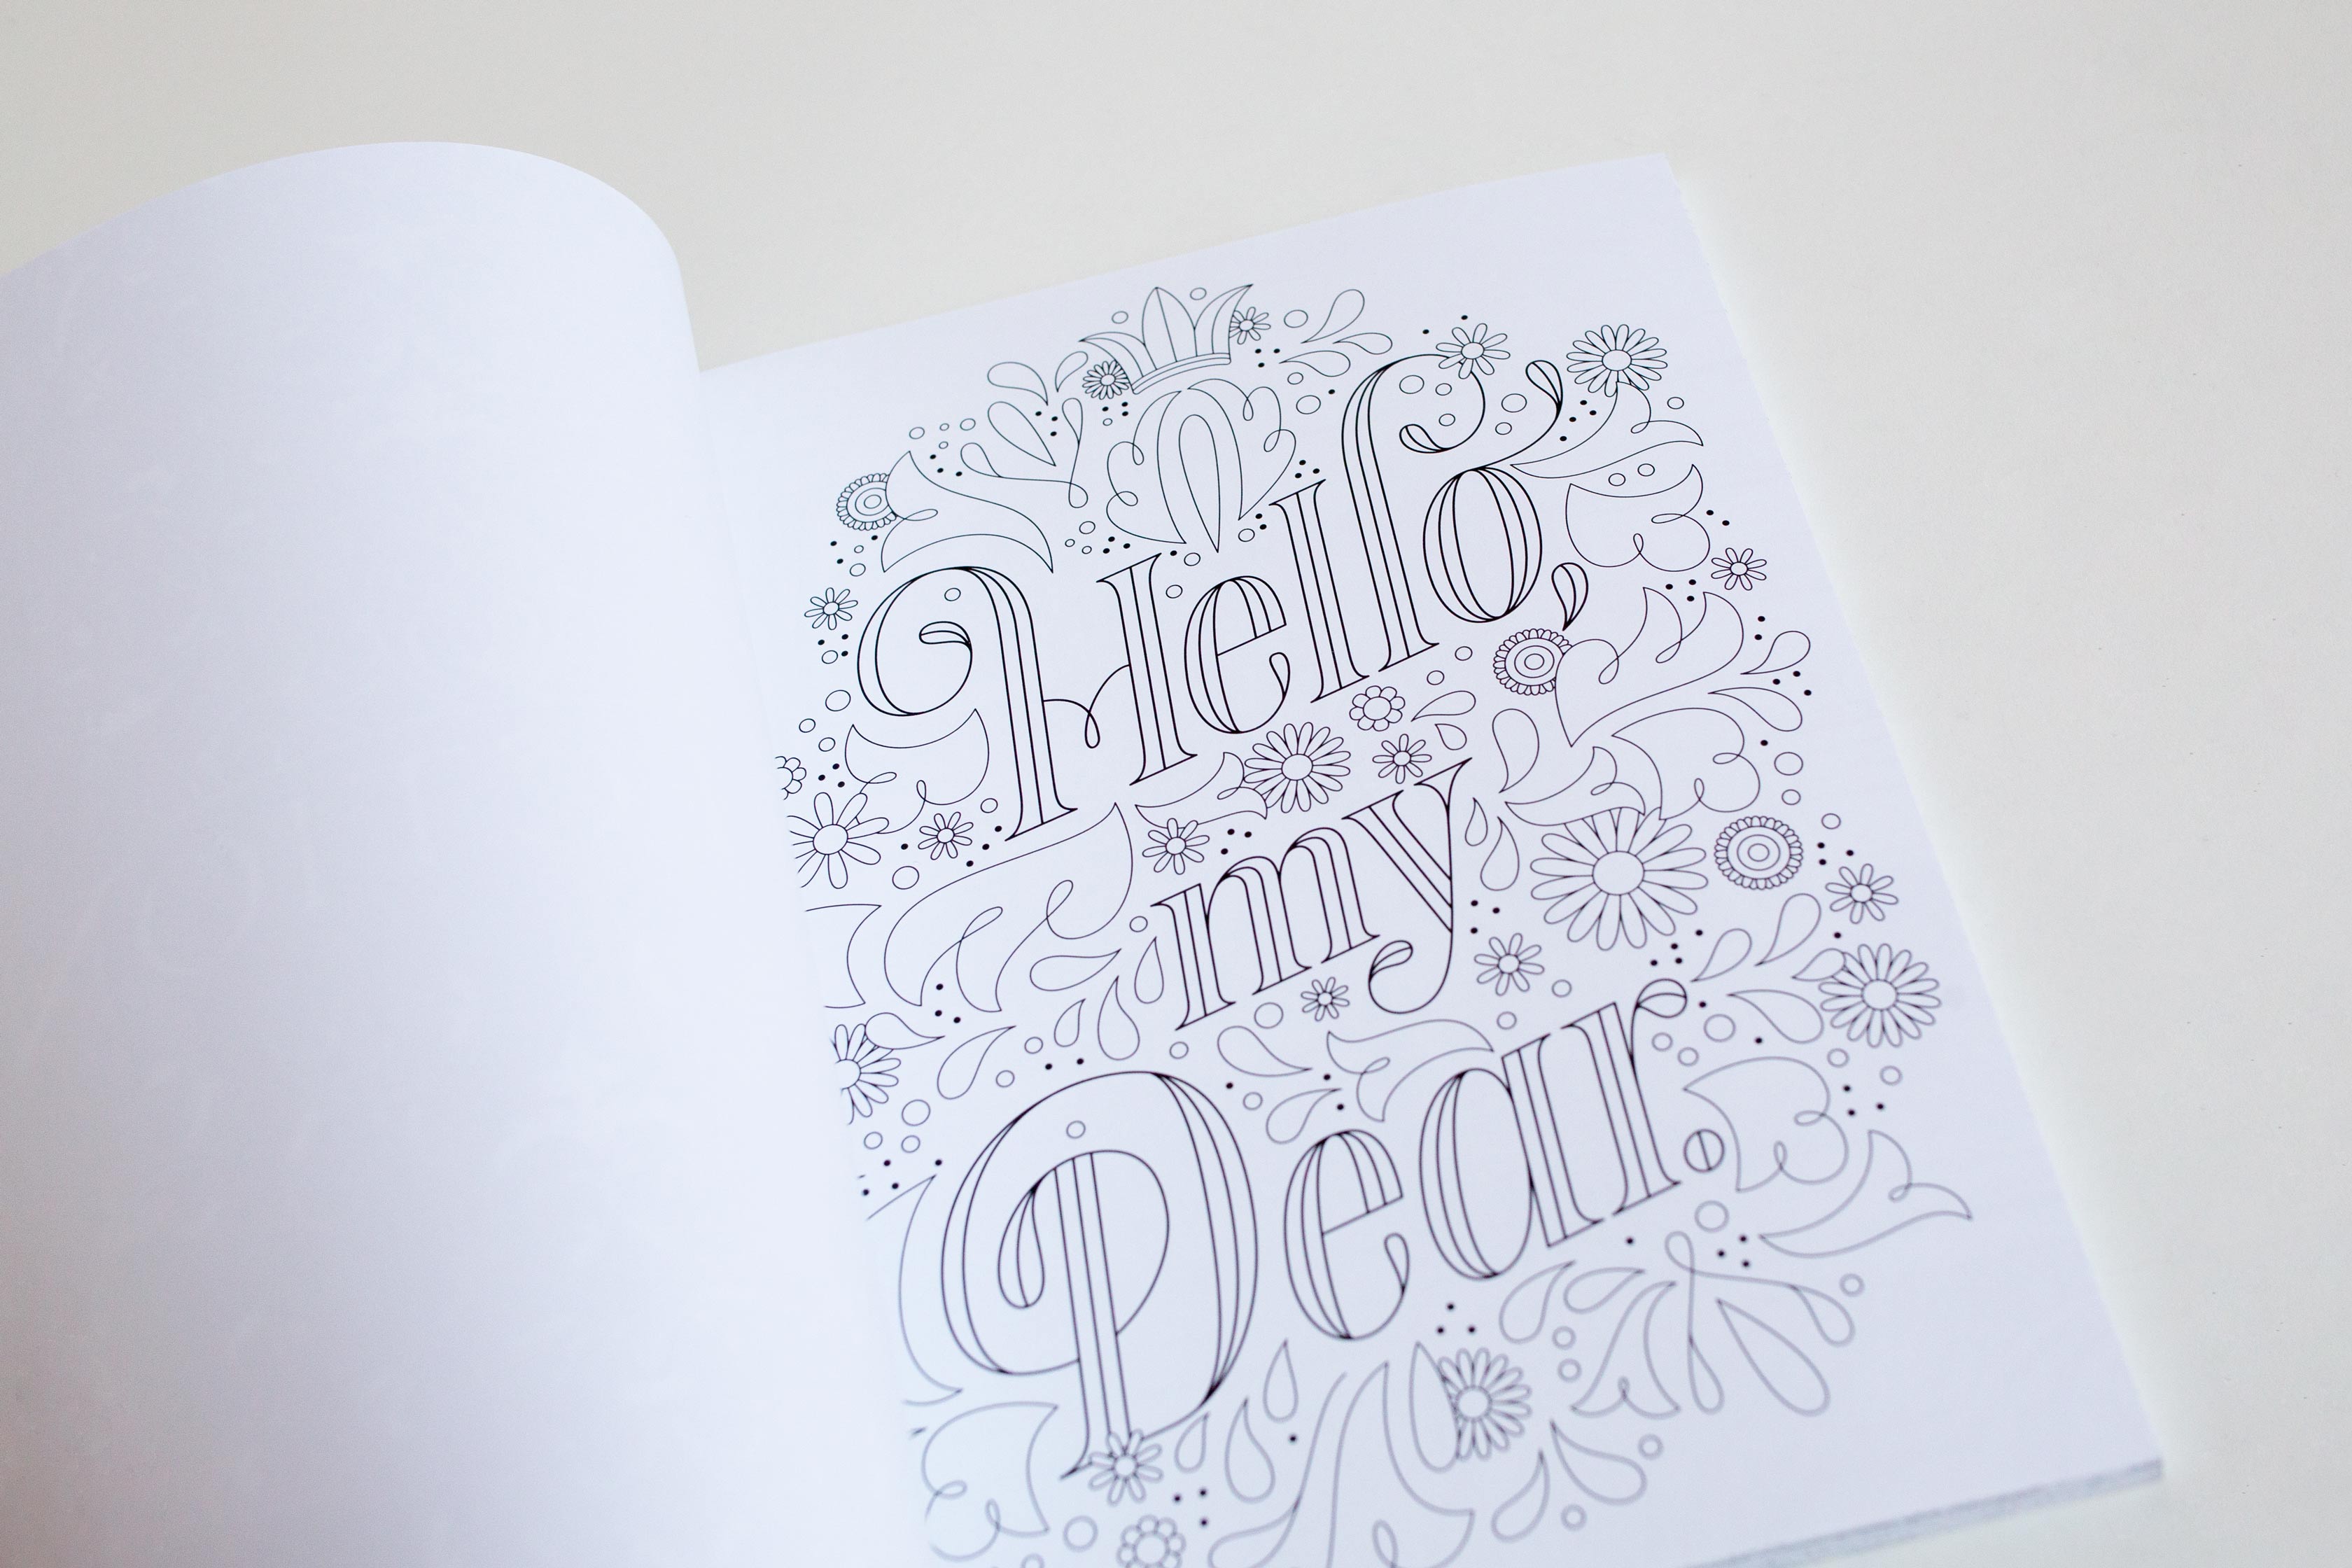 Hello,
my
Dear.